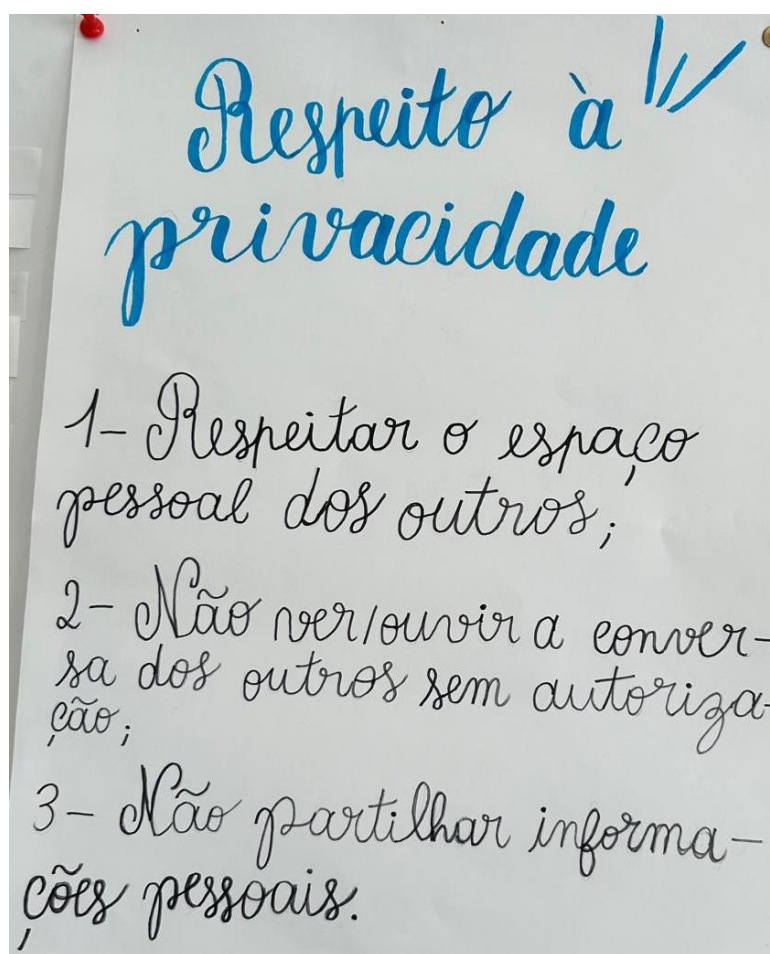 Respeito à
privacidade
1- Respeitar o espaço
pessoal dos outros;
2- Não ver/ouvir a conver-
sa dos outros sem autoriza-
ção;
3- Não partilhar informa-
ções pessoais.